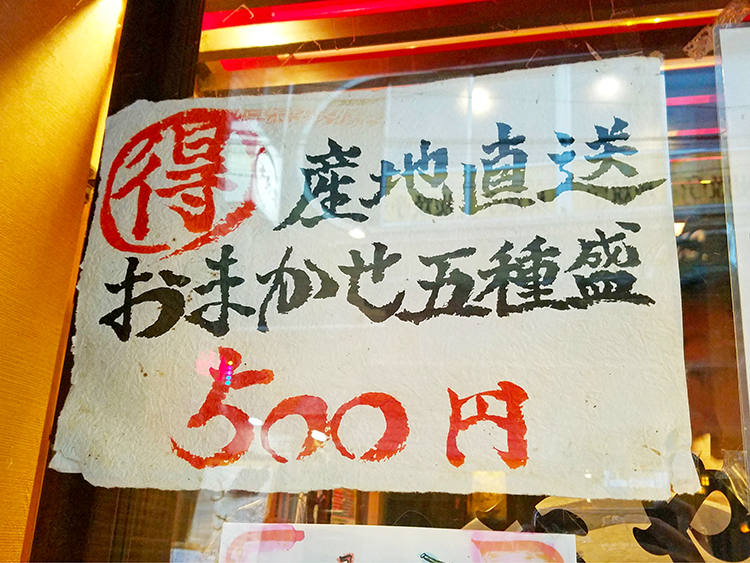 得 産地直送
おまかせ五種盛
500円